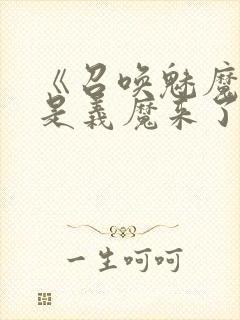 《召唤魅魔
是義魔来了
一生呵呵